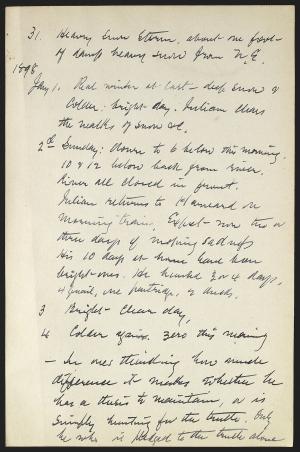 31. Heavy snow storm, about one foot
of damp heavy snow from N.E.
1898
Jany 1. Real winter at last - deep snow &
Colder: bright day. Julian clears
the walks of snow &c.
2nd Sunday: down to 6 below this morning,
10 & 12 below back from river.
River all closed in front.
Julian returns to Harvard on
morning train. Expect now two or
three days of moping sadness
His 10 days at home have been
bright ones. He hunted 3 or 4 days,
4 quail, one partridge, 2 ducks.
3 Bright - clear day,
4 Colder again. Zero this morning
- In over thinking how much
difference it makes whether he
has a thesis to maintain, or is
simply hunting for the truth. Only
he who is pledged to the truth alone